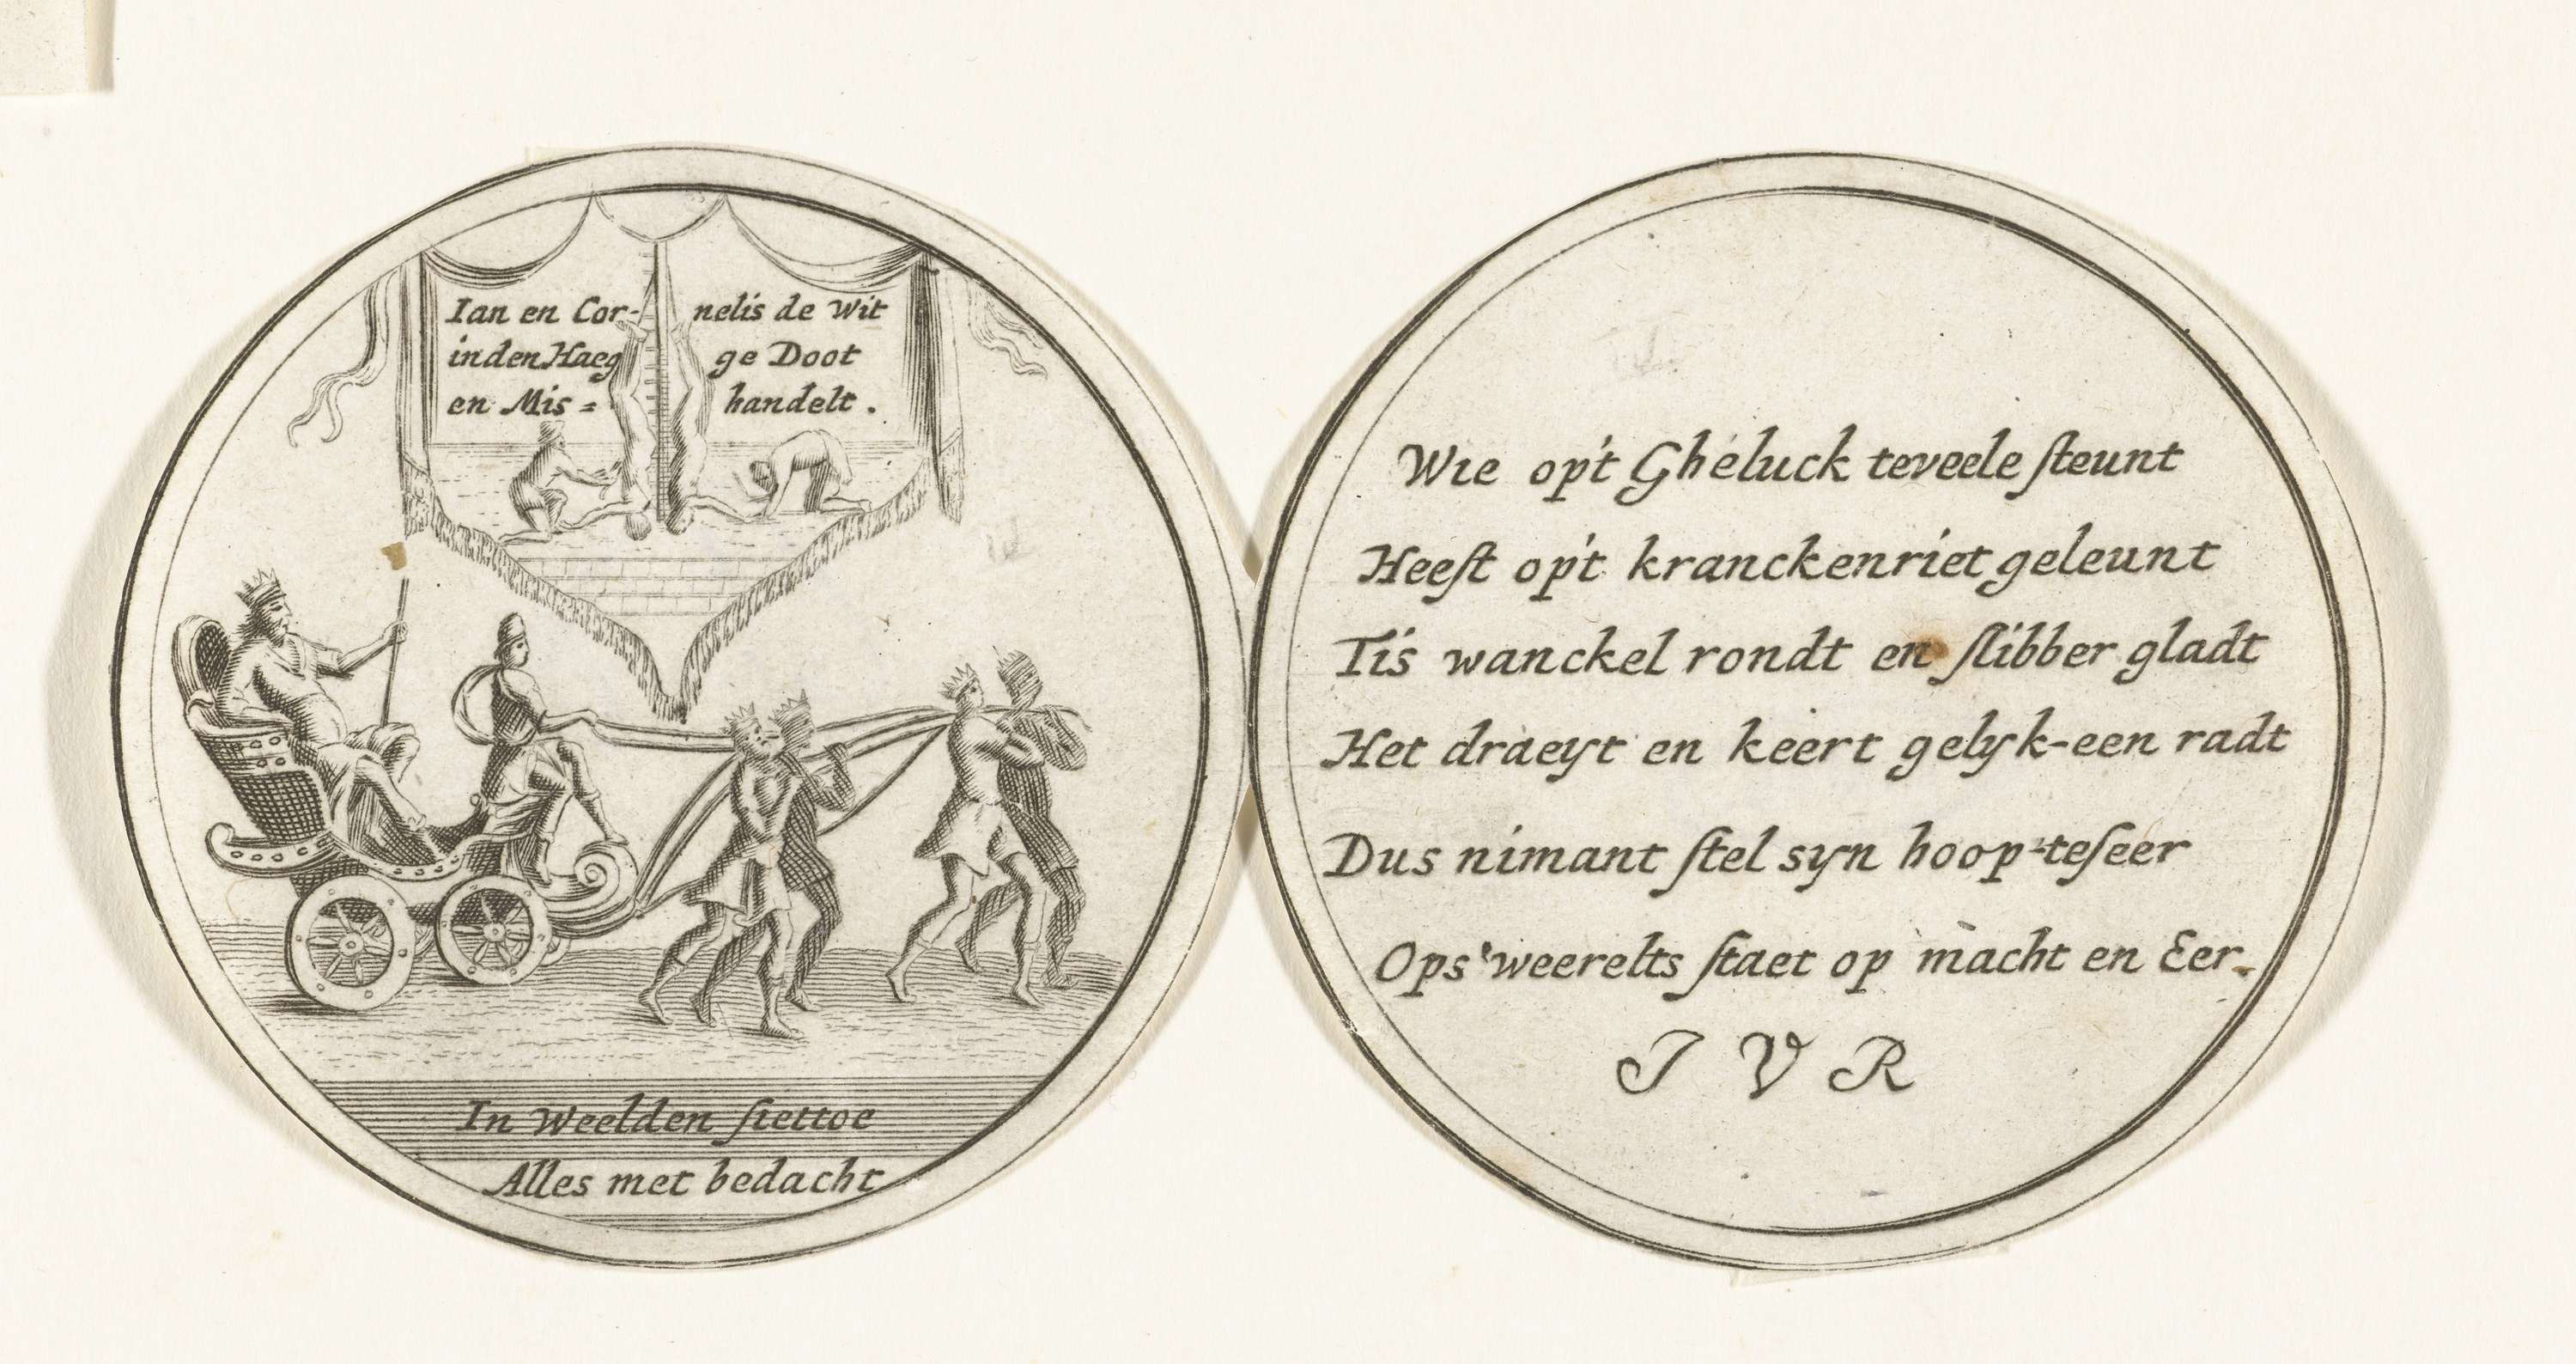 Ian en Cor- nelis de Wit
in den Haeg ge Doot
en Mis = handelt.
In Weelden siettoe
Alles met bedacht
Wie op't Gheluck teveele steunt
Heeft op't kranckenriet geleunt
Tis wanckel rondt en slibber gladt
Het draeyt en keert gelyk-een radt
Dus nimant stel syn hoop-teseer
Ops'weerelts staet op macht en Eer.
J V R